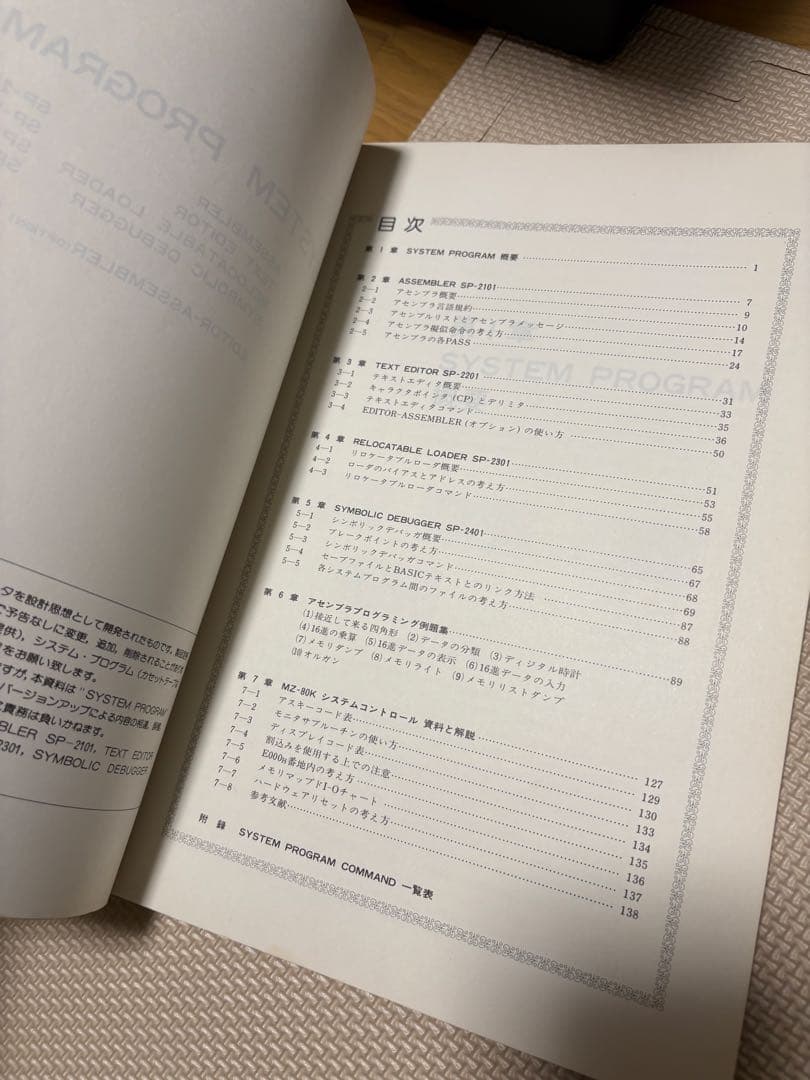 目次
第1章 SYSTEM PROGRAM 概要 1
第2章 ASSEMBLER SP-2101 7
2—1 アセンブラ概要 9
2—2 アセンブラ言語規約 10
2—3 アセンブルリストとアセンブラメッセージ 14
2—4 アセンブラ擬似命令の考え方 17
2—5 アセンブラの各PASS 24
第3章 TEXT EDITOR SP-2201 31
3—1 テキストエディタ概要 33
3—2 キャラクタポインタ(CP)とデリミタ 35
3—3 テキストエディタコマンド 36
3—4 EDITOR-ASSEMBLER(オプション)の使い方 50
第4章 RELOCATABLE LOADER SP-2301 51
4—1 リロケータブルローダ概要 53
4—2 ローダのバイアスとアドレスの考え方 55
4—3 リロケータブルローダコマンド 58
第5章 SYMBOLIC DEBUGGER SP-2401 65
5—1 シンボリックデバッガ概要 67
5—2 ブレークポイントの考え方 68
5—3 シンボリックデバッガコマンド 69
5—4 セーブファイルとBASICテキストとのリンク方法 87
5—5 各システムプログラム間のファイルの考え方 88
第6章 アセンブラプログラミング例題集 89
(1)接近して来る四角形 (2)データの分類 (3)ディジタル時計
(4)16進の乗算 (5)16進データの表示 (6)16進データの入力
(7)メモリダンプ (8)メモリライト (9)メモリリストダンプ
(10)オルガン
第7章 MZ-80K システムコントロール 資料と解説 127
7—1 アスキーコード表 129
7—2 モニタサブルーチンの使い方 130
7—3 ディスプレイコード表 133
7—4 割込みを使用する上での注意 134
7—5 E000H番地内の考え方 135
7—6 メモリマップドI-Oチャート 136
7—7 ハードウェアリセットの考え方 137
7—8 参考文献 138
附録 SYSTEM PROGRAM COMMAND 一覧表
SYSTEM PROGRAM
タを設計思想として開発されたものです。
予告なしに変更，追加，削除されることが
提供)，システム・プログラム(カセットテープ
をお願い致します。
すが，本資料は"SYSTEM PROGRAM
バージョンアップによる内容の相違，
責務は負いかねます。
BLER SP-2101, TEXT EDITOR
2301, SYMBOLIC DEBUGGER